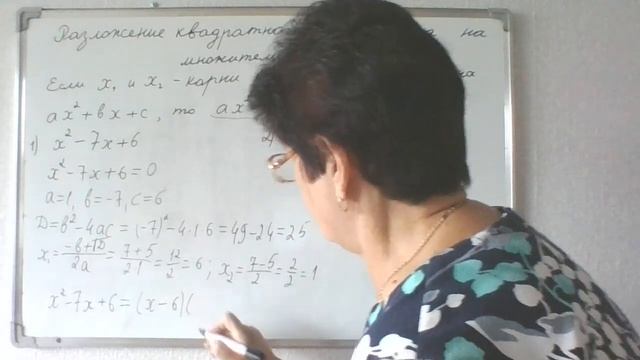 Разложение квадратно на
множител
Если x₁ и x₂ - корни
ax² + bx + c, то ax²
1) x² - 7x + 6
x² - 7x + 6 = 0
a = 1, b = -7, c = 6
D = b² - 4ac = (-7)² - 4·1·6 = 49 - 24 = 25
x₁ = (-b+√D)/2a = (7+5)/(2·1) = 12/2 = 6; x₂ = (7-5)/2 = 2/2 = 1
x² - 7x + 6 = (x - 6)(